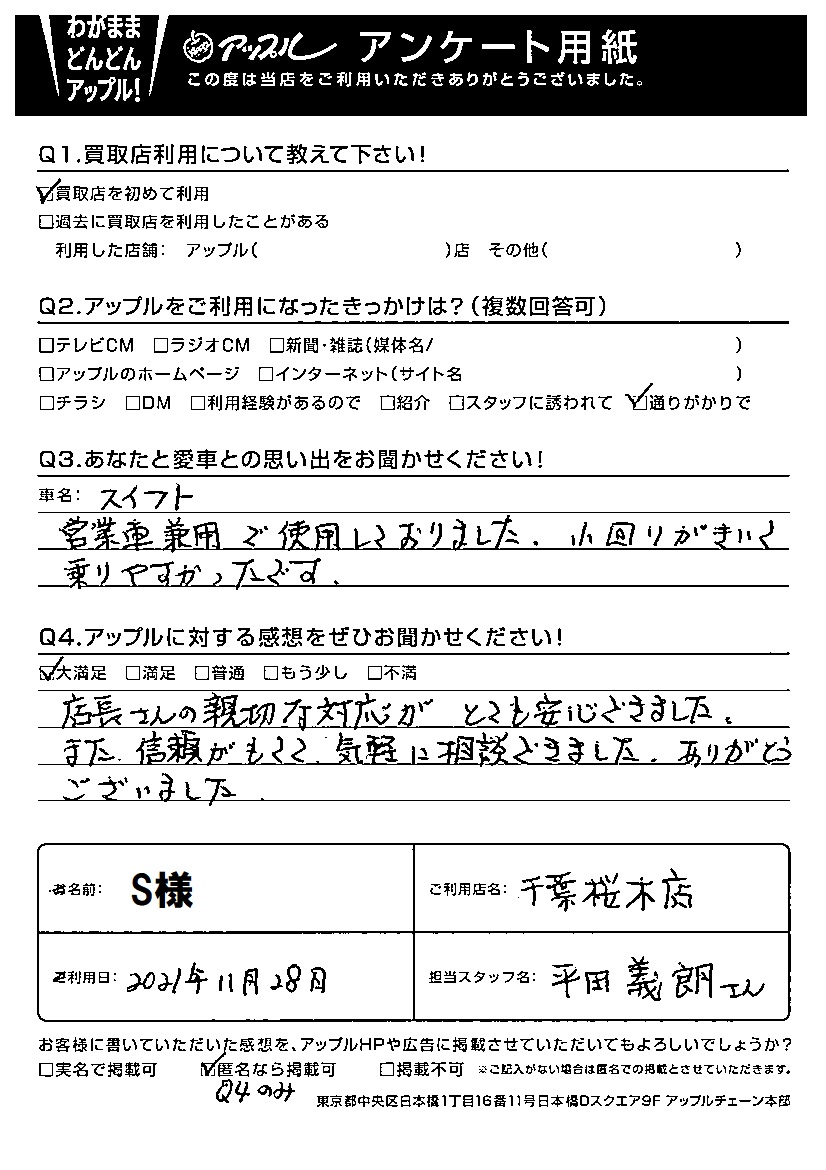 わがまま
どんどん
アップル!
アップル アンケート用紙
この度は当店をご利用いただきありがとうございました。
Q1.買取店利用について教えて下さい!
☑買取店を初めて利用
□過去に買取店を利用したことがある
利用した店舗: アップル( )店 その他( )
Q2.アップルをご利用になったきっかけは?(複数回答可)
□テレビCM □ラジオCM □新聞・雑誌(媒体名/ )
□アップルのホームページ □インターネット(サイト名 )
□チラシ □DM □利用経験があるので □紹介 □スタッフに誘われて ☑通りがかりで
Q3.あなたと愛車との思い出をお聞かせください!
車名: スイフト
営業車兼用で使用しておりました。小回りがきいて
乗りやすかったです。
Q4.アップルに対する感想をぜひお聞かせください!
☑大満足 □満足 □普通 □もう少し □不満
店長さんの親切な対応が とても安心できました。
また、信頼がもてて、気軽に相談できました。ありがとう
ございました。
お名前: S様
ご利用店名: 千葉桜木店
ご利用日: 2021年11月28日
担当スタッフ名: 平田義朗さん
お客様に書いていただいた感想を、アップルHPや広告に掲載させていただいてもよろしいでしょうか?
□実名で掲載可 ☑匿名なら掲載可 □掲載不可 ※ご記入がない場合は匿名での掲載とさせていただきます。
Q4のみ
東京都中央区日本橋1丁目16番11号日本橋Dスクエア9F アップルチェーン本部